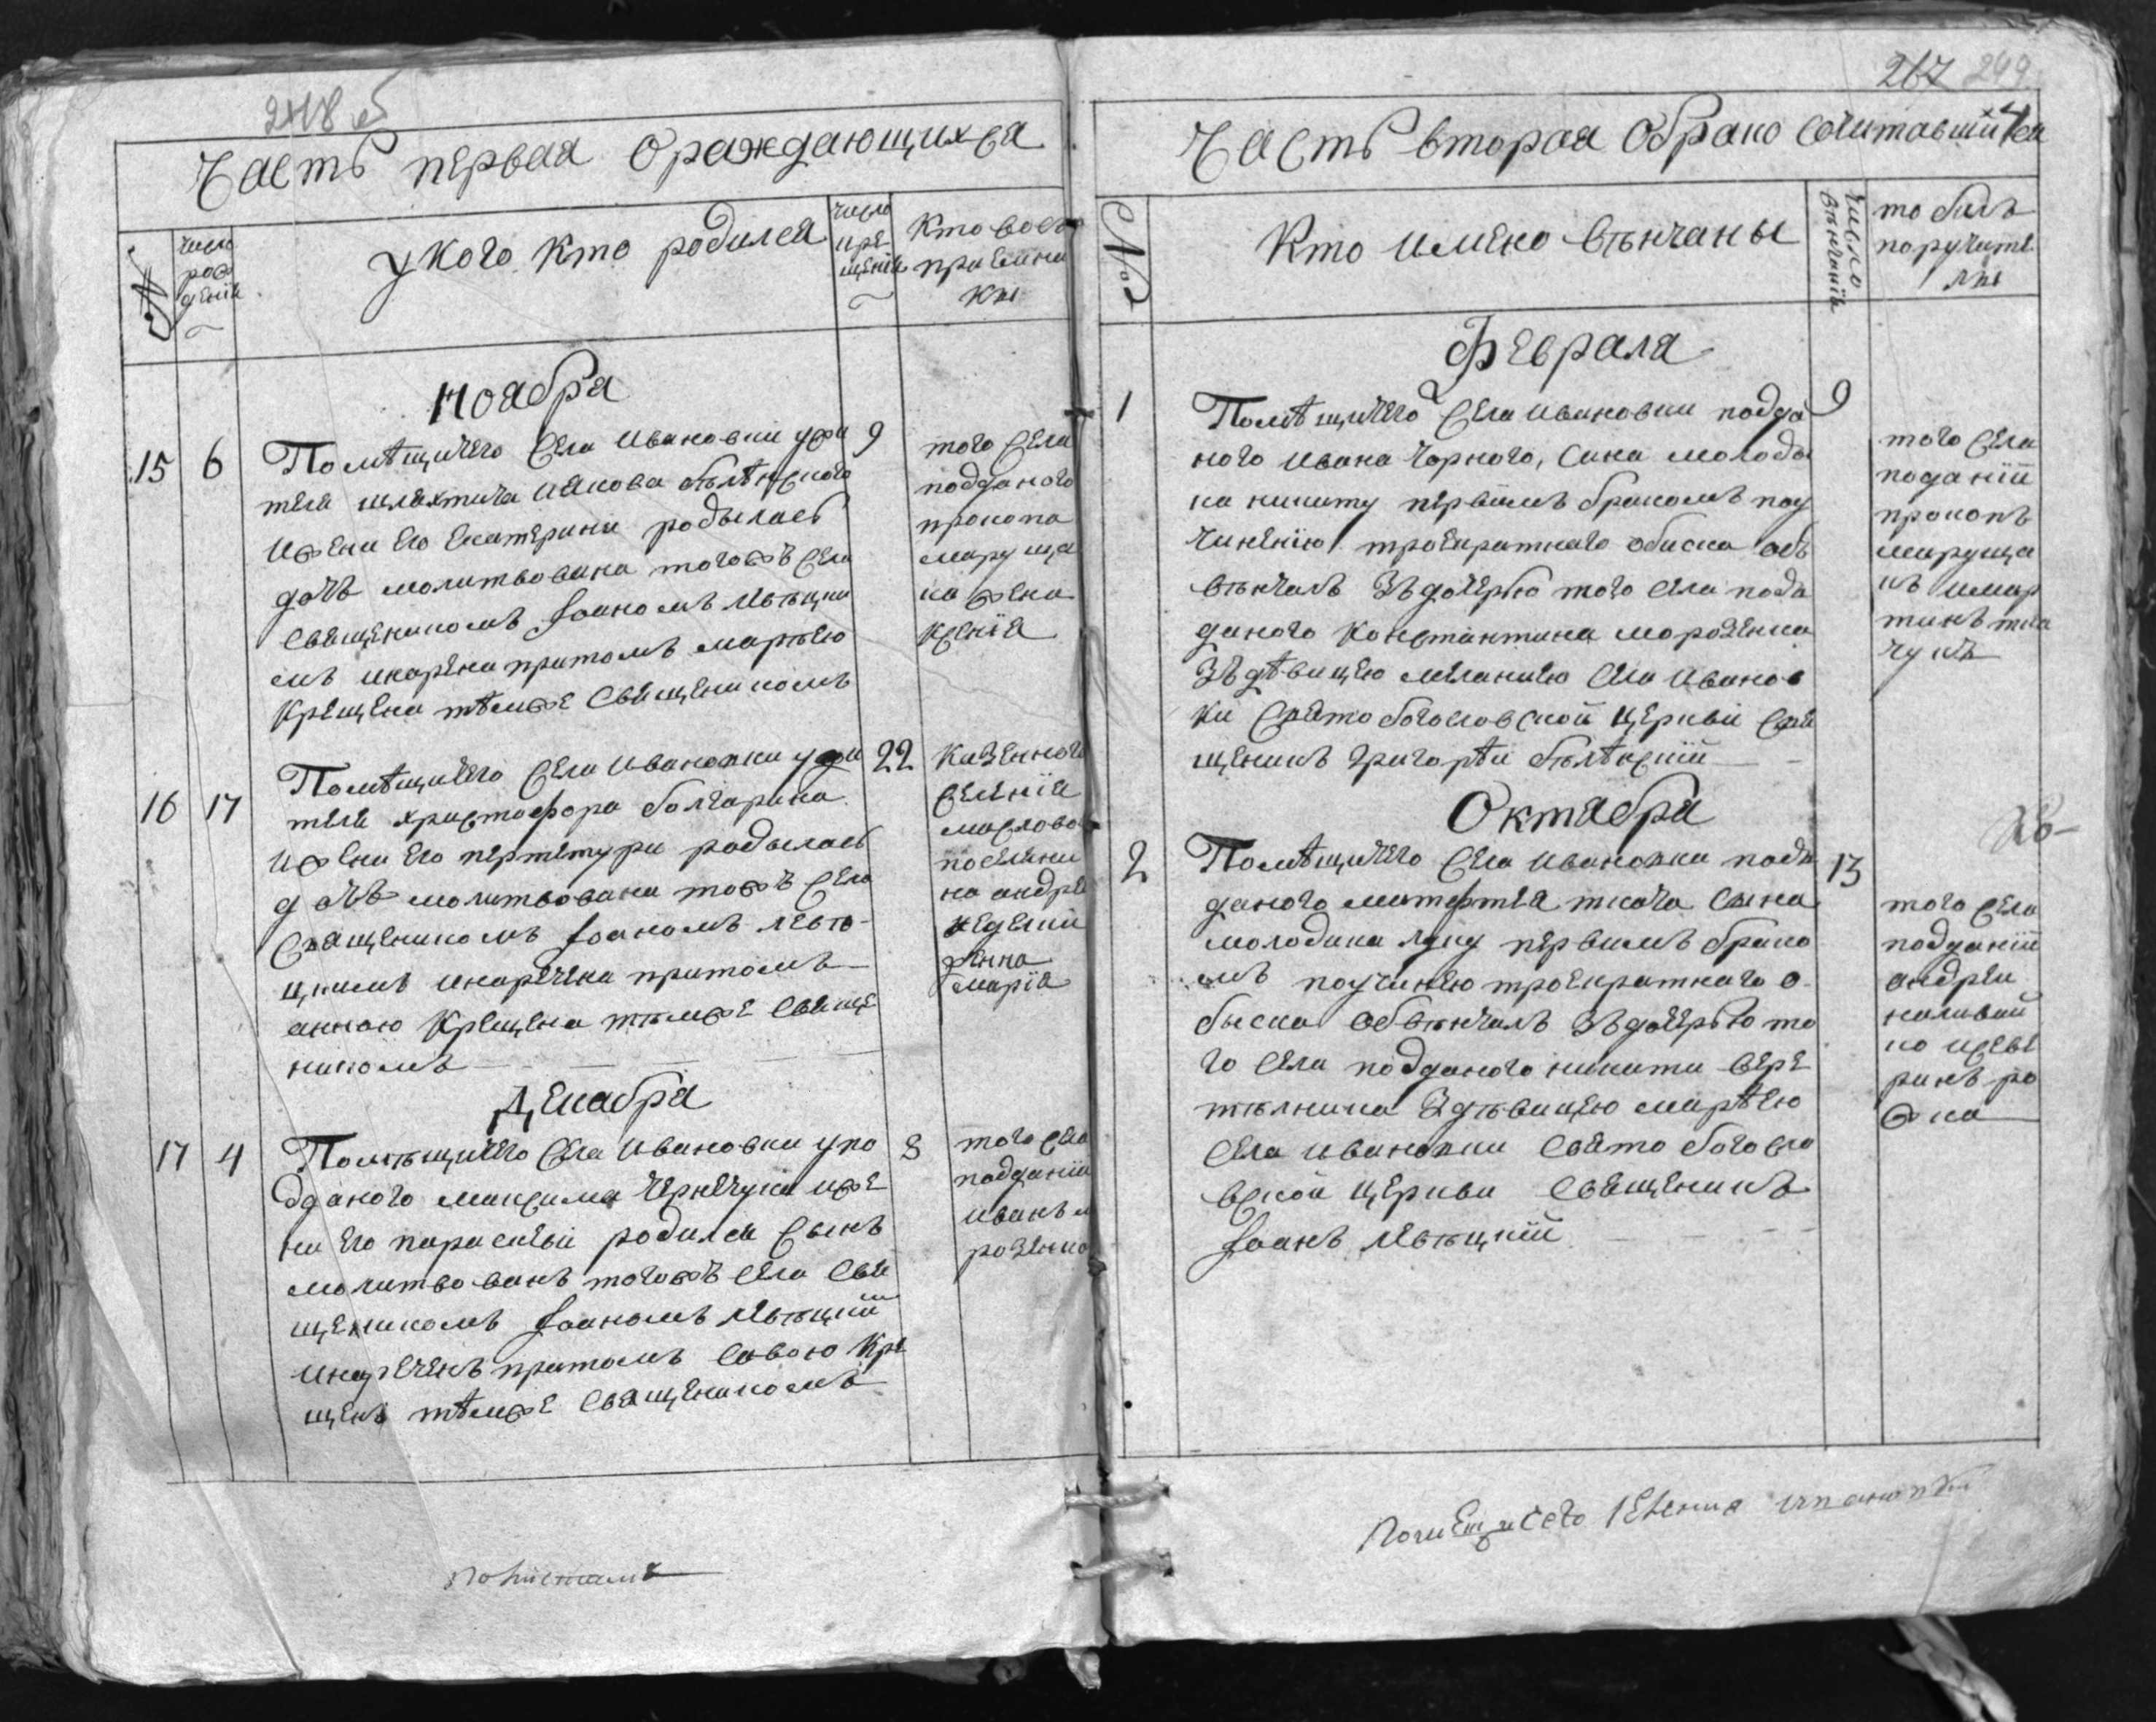 248 об
Часть первая ораждающихся
№
число рождения
у кого кто родился
число крещения
Кто восприемники
Ноября
15 6
Помѣщичего села Ивановки ужи
теля шляхтича иякова бѣлѣнского
ижени его екатерини родылась
дочь молитвована тогожъ села
священикомъ Іоаномъ Левѣцки
мъ инаречена притомъ марѣею
крещена тѣмже священикомъ
9
того села
подданого
прокопа
маруща
ка жена
ксенія
16 17
Помѣщичего села Ивановки ужи
теля христофора болгарина
ижени его перпетури родылась
дочь молитвована тожъ села
священикомъ Іоаномъ Левѣ-
цкимъ инаречена притомъ
анною крещена тѣмже свяще
никомъ
22
казенного
селенія
маслово
поселяни
на андрѣ
жена
марія
Декабря
17 4
Помѣщичего села Ивановки упо
дданого максима чернечука иже
ни его параскевіи родился сынъ
молитвованъ тогожъ села свя
щеникомъ Іоаномъ Левѣцкій
инареченъ притомъ савою кре
щенъ тѣмже священикомъ
8
того села
подданій
иванъ м
розенко
267 249
Часть вторая обрако сочитавшихся
№
Кто имено вѣнчаны
число вѣнчанія
то билъ
поручите
ли
Февраля
1
Помѣщичего села Ивановки подда
ного ивана чорного, сина молоды
ка никиту первимъ бракомъ поу
чиненію троекратнаго обиска обѣ
вѣнчалъ зъдочерью того села подъ
даного константина морозенка
зъдѣвицею меланиею села иванов
ки святобогословской церкви свя
щеникъ григорѣй бѣлѣнскій
9
того села
поданій
прокопъ
маруща
къ имар
тинъ тка
чукъ
Октября
2
Помѣщичего села Ивановки подъ
даного матфея ткача сына
молодика луку первимъ брако
мъ поучинею троекратнаго о
быска обвѣнчалъ зъдочерью то
го села подданого никити вере
тѣлника здѣвицею марѣею
села ивановки святобогосло
вской церкви священикъ
Іоанъ Левѣцкій
13
того села
подданій
андреи
наливай
ко исеве
ринъ ро
жка